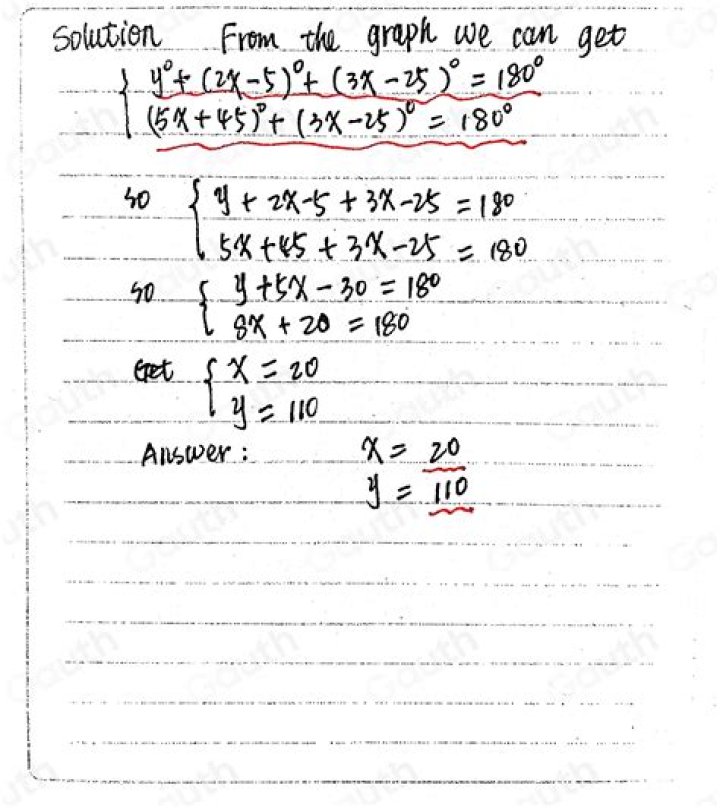 Solution From the graph we can get
y° + (2x - 5)° + (3x - 25)° = 180°
(5x + 45)° + (3x - 25)° = 180°
so y + 2x - 5 + 3x - 25 = 180
5x + 45 + 3x - 25 = 180
so y + 5x - 30 = 180
8x + 20 = 180
Get x = 20
y = 110
Answer: x = 20
y = 110